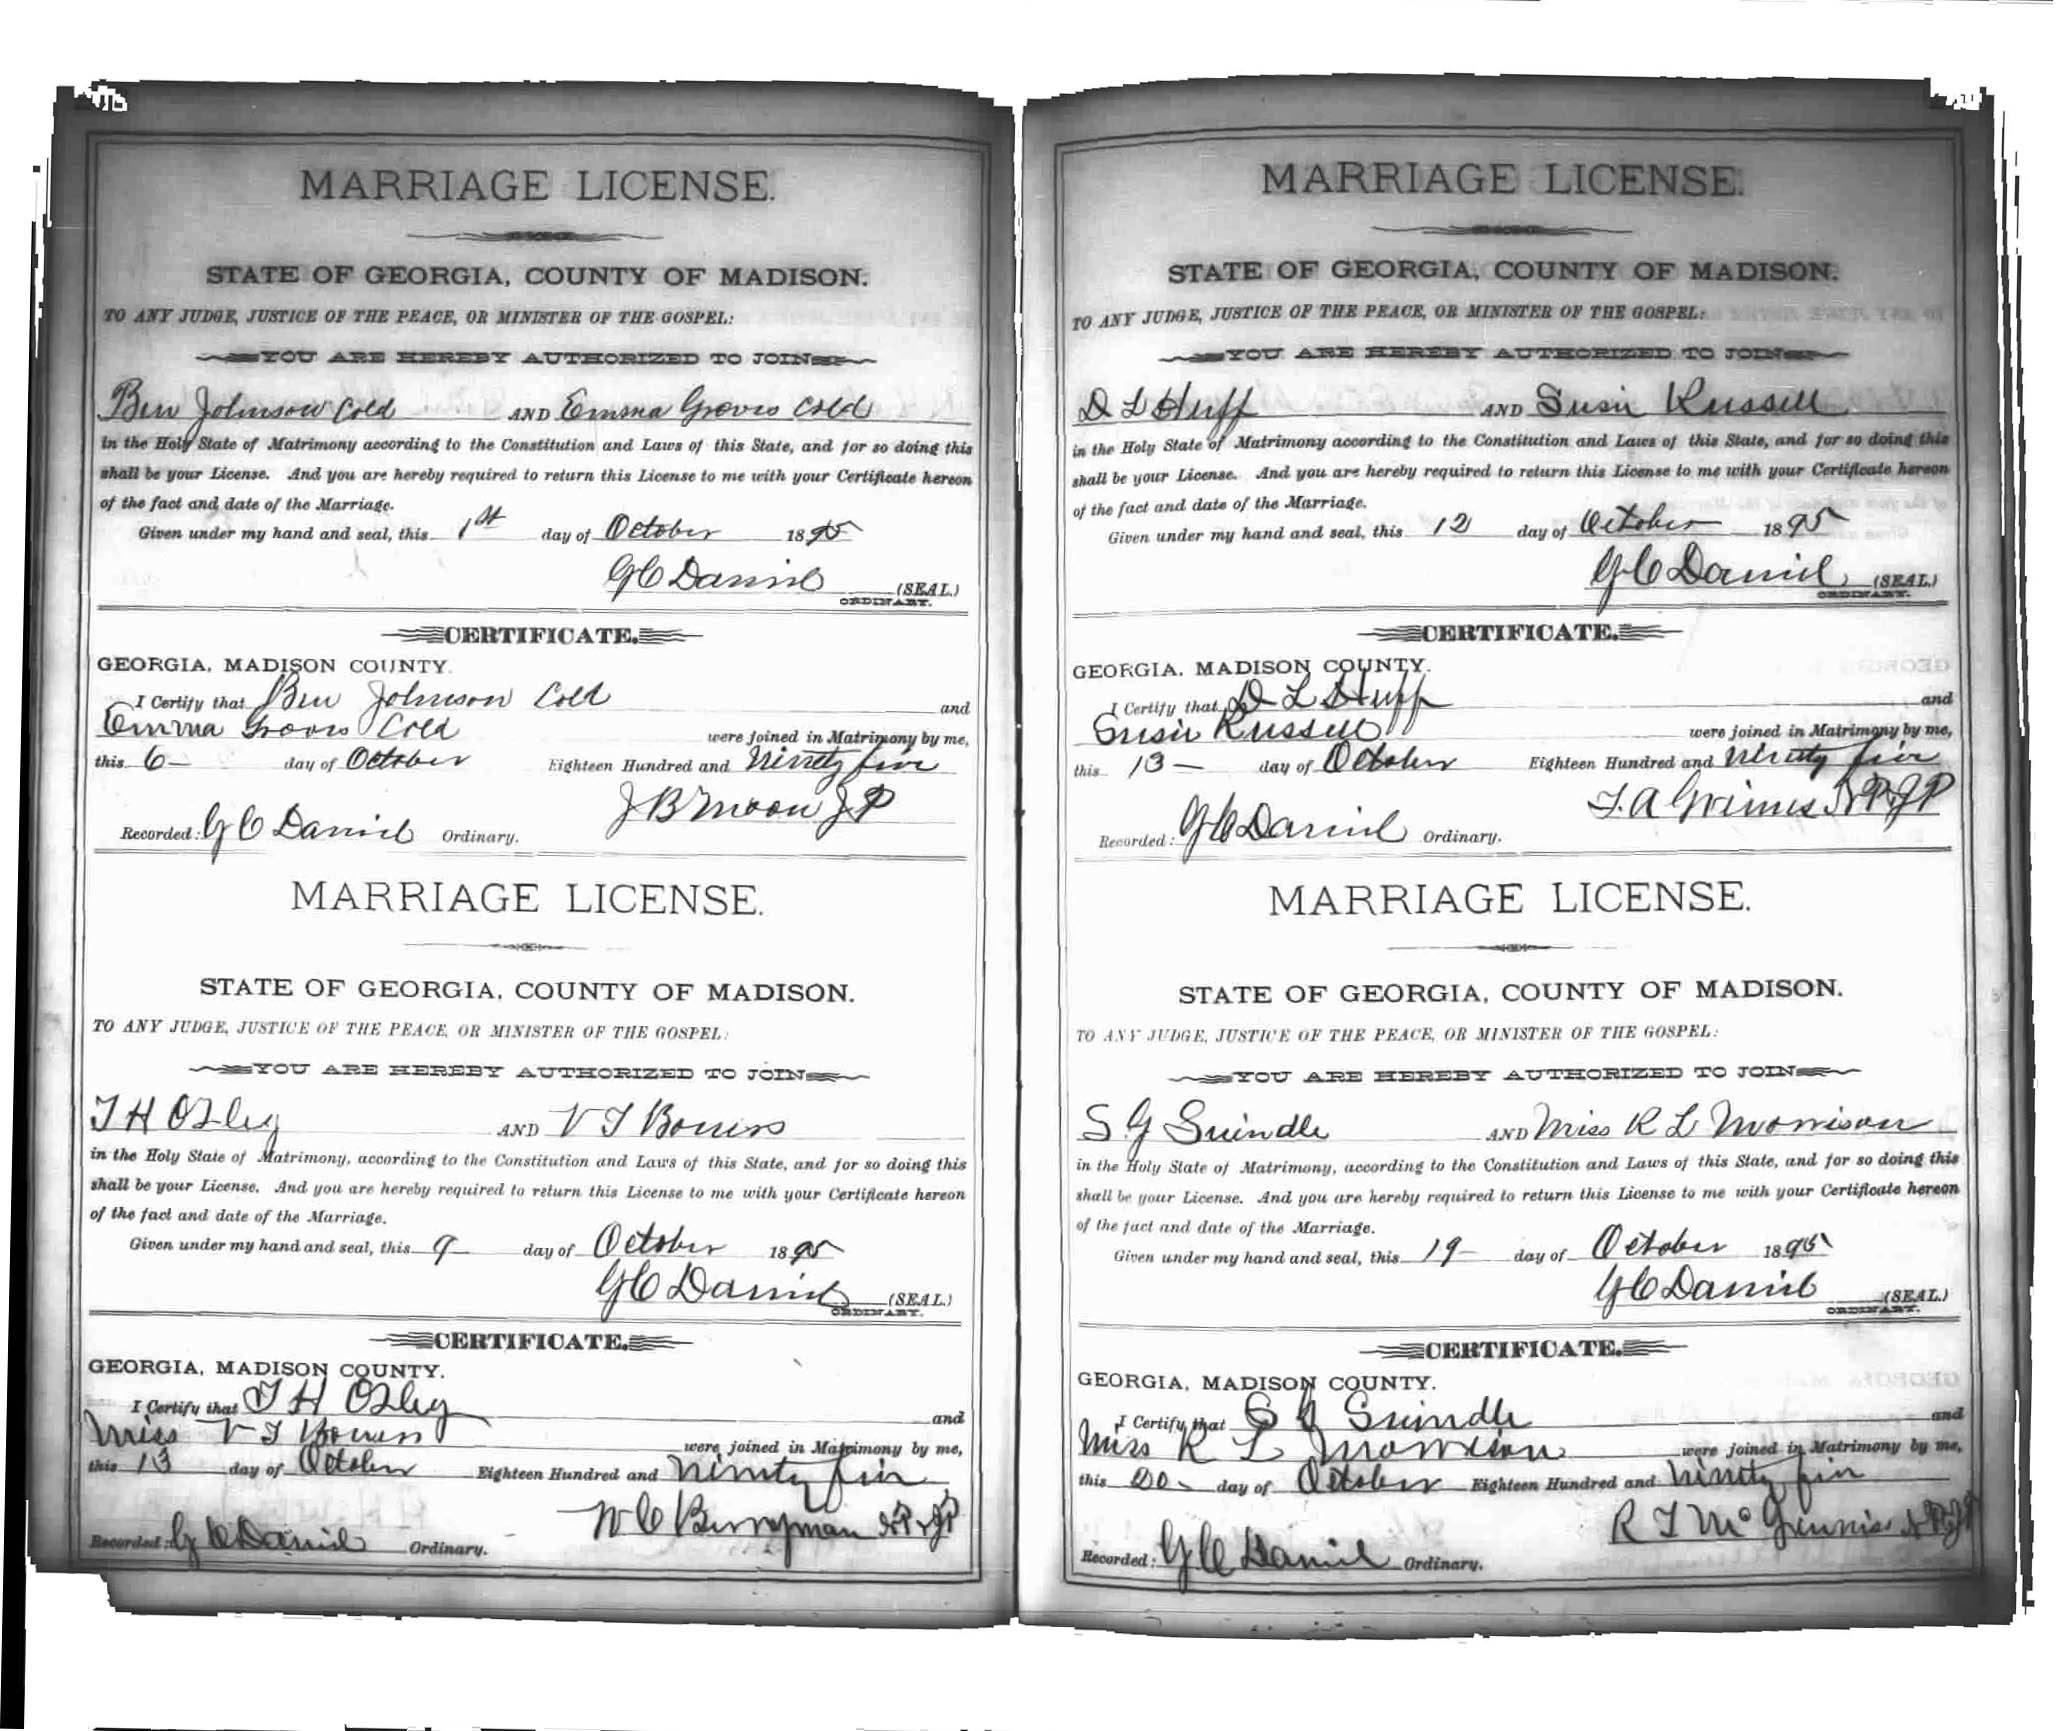 MARRIAGE LICENSE.
STATE OF GEORGIA, COUNTY OF MADISON.
TO ANY JUDGE, JUSTICE OF THE PEACE, OR MINISTER OF THE GOSPEL:
YOU ARE HEREBY AUTHORIZED TO JOIN
Ben Johnson Cold AND Emma Groves Cold
in the Holy State of Matrimony according to the Constitution and Laws of this State, and for so doing this
shall be your License. And you are hereby required to return this License to me with your Certificate hereon
of the fact and date of the Marriage.
Given under my hand and seal, this 1st day of October 1895
G C Daniel (SEAL.)
ORDINARY.
CERTIFICATE.
GEORGIA, MADISON COUNTY.
I Certify that Ben Johnson Cold and
Emma Groves Cold were joined in Matrimony by me,
this 6 day of October Eighteen Hundred and Ninety five
J B Moon J P
Recorded: G C Daniel Ordinary.
MARRIAGE LICENSE.
STATE OF GEORGIA, COUNTY OF MADISON.
TO ANY JUDGE, JUSTICE OF THE PEACE, OR MINISTER OF THE GOSPEL:
YOU ARE HEREBY AUTHORIZED TO JOIN
T H Ozley AND V T Bowers
in the Holy State of Matrimony, according to the Constitution and Laws of this State, and for so doing this
shall be your License. And you are hereby required to return this License to me with your Certificate hereon
of the fact and date of the Marriage.
Given under my hand and seal, this 9 day of October 1895
G C Daniel (SEAL.)
ORDINARY.
CERTIFICATE.
GEORGIA, MADISON COUNTY.
I Certify that T H Ozley and
Miss V T Bowers were joined in Matrimony by me,
this 13 day of October Eighteen Hundred and Ninety five
W C Berryman N P & J P
Recorded: G C Daniel Ordinary.
MARRIAGE LICENSE.
STATE OF GEORGIA, COUNTY OF MADISON.
TO ANY JUDGE, JUSTICE OF THE PEACE, OR MINISTER OF THE GOSPEL:
YOU ARE HEREBY AUTHORIZED TO JOIN
D L Huff AND Susie Russell
in the Holy State of Matrimony according to the Constitution and Laws of this State, and for so doing this
shall be your License. And you are hereby required to return this License to me with your Certificate hereon
of the fact and date of the Marriage.
Given under my hand and seal, this 12 day of October 1895
G C Daniel (SEAL.)
ORDINARY.
CERTIFICATE.
GEORGIA, MADISON COUNTY.
I Certify that D L Huff and
Susie Russell were joined in Matrimony by me,
this 13 day of October Eighteen Hundred and Ninety five
T. A Grimes N P & J P
Recorded: G C Daniel Ordinary.
MARRIAGE LICENSE.
STATE OF GEORGIA, COUNTY OF MADISON.
TO ANY JUDGE, JUSTICE OF THE PEACE, OR MINISTER OF THE GOSPEL:
YOU ARE HEREBY AUTHORIZED TO JOIN
S G Suindle AND Miss R L Morrison
in the Holy State of Matrimony, according to the Constitution and Laws of this State, and for so doing this
shall be your License. And you are hereby required to return this License to me with your Certificate hereon
of the fact and date of the Marriage.
Given under my hand and seal, this 19 day of October 1895
G C Daniel (SEAL.)
ORDINARY.
CERTIFICATE.
GEORGIA, MADISON COUNTY.
I Certify that S G Suindle and
Miss R L Morrison were joined in Matrimony by me,
this 20 day of October Eighteen Hundred and Ninety five
R T McGinnis N P & J P
Recorded: G C Daniel Ordinary.